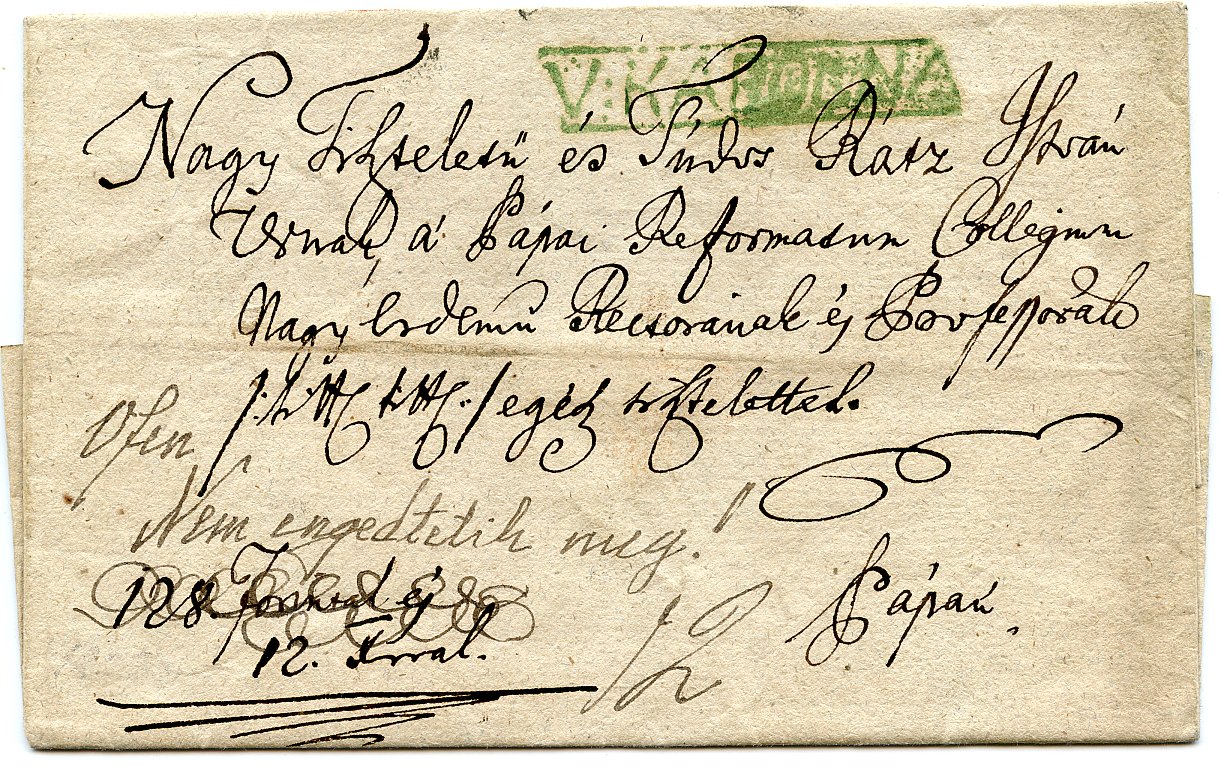 V:KATONNA
Nagy Tisztelesű és Tudos Rátz István
Urnak, á Pápai Reformatum Collegium
Nagy Erdemű Rectorának és Professorák
/: titt. titt. :/ egész tisztelettel.
Ofen
Nem engedtetik meg!
128. forintal és
12. Xrral.
12
Pápán